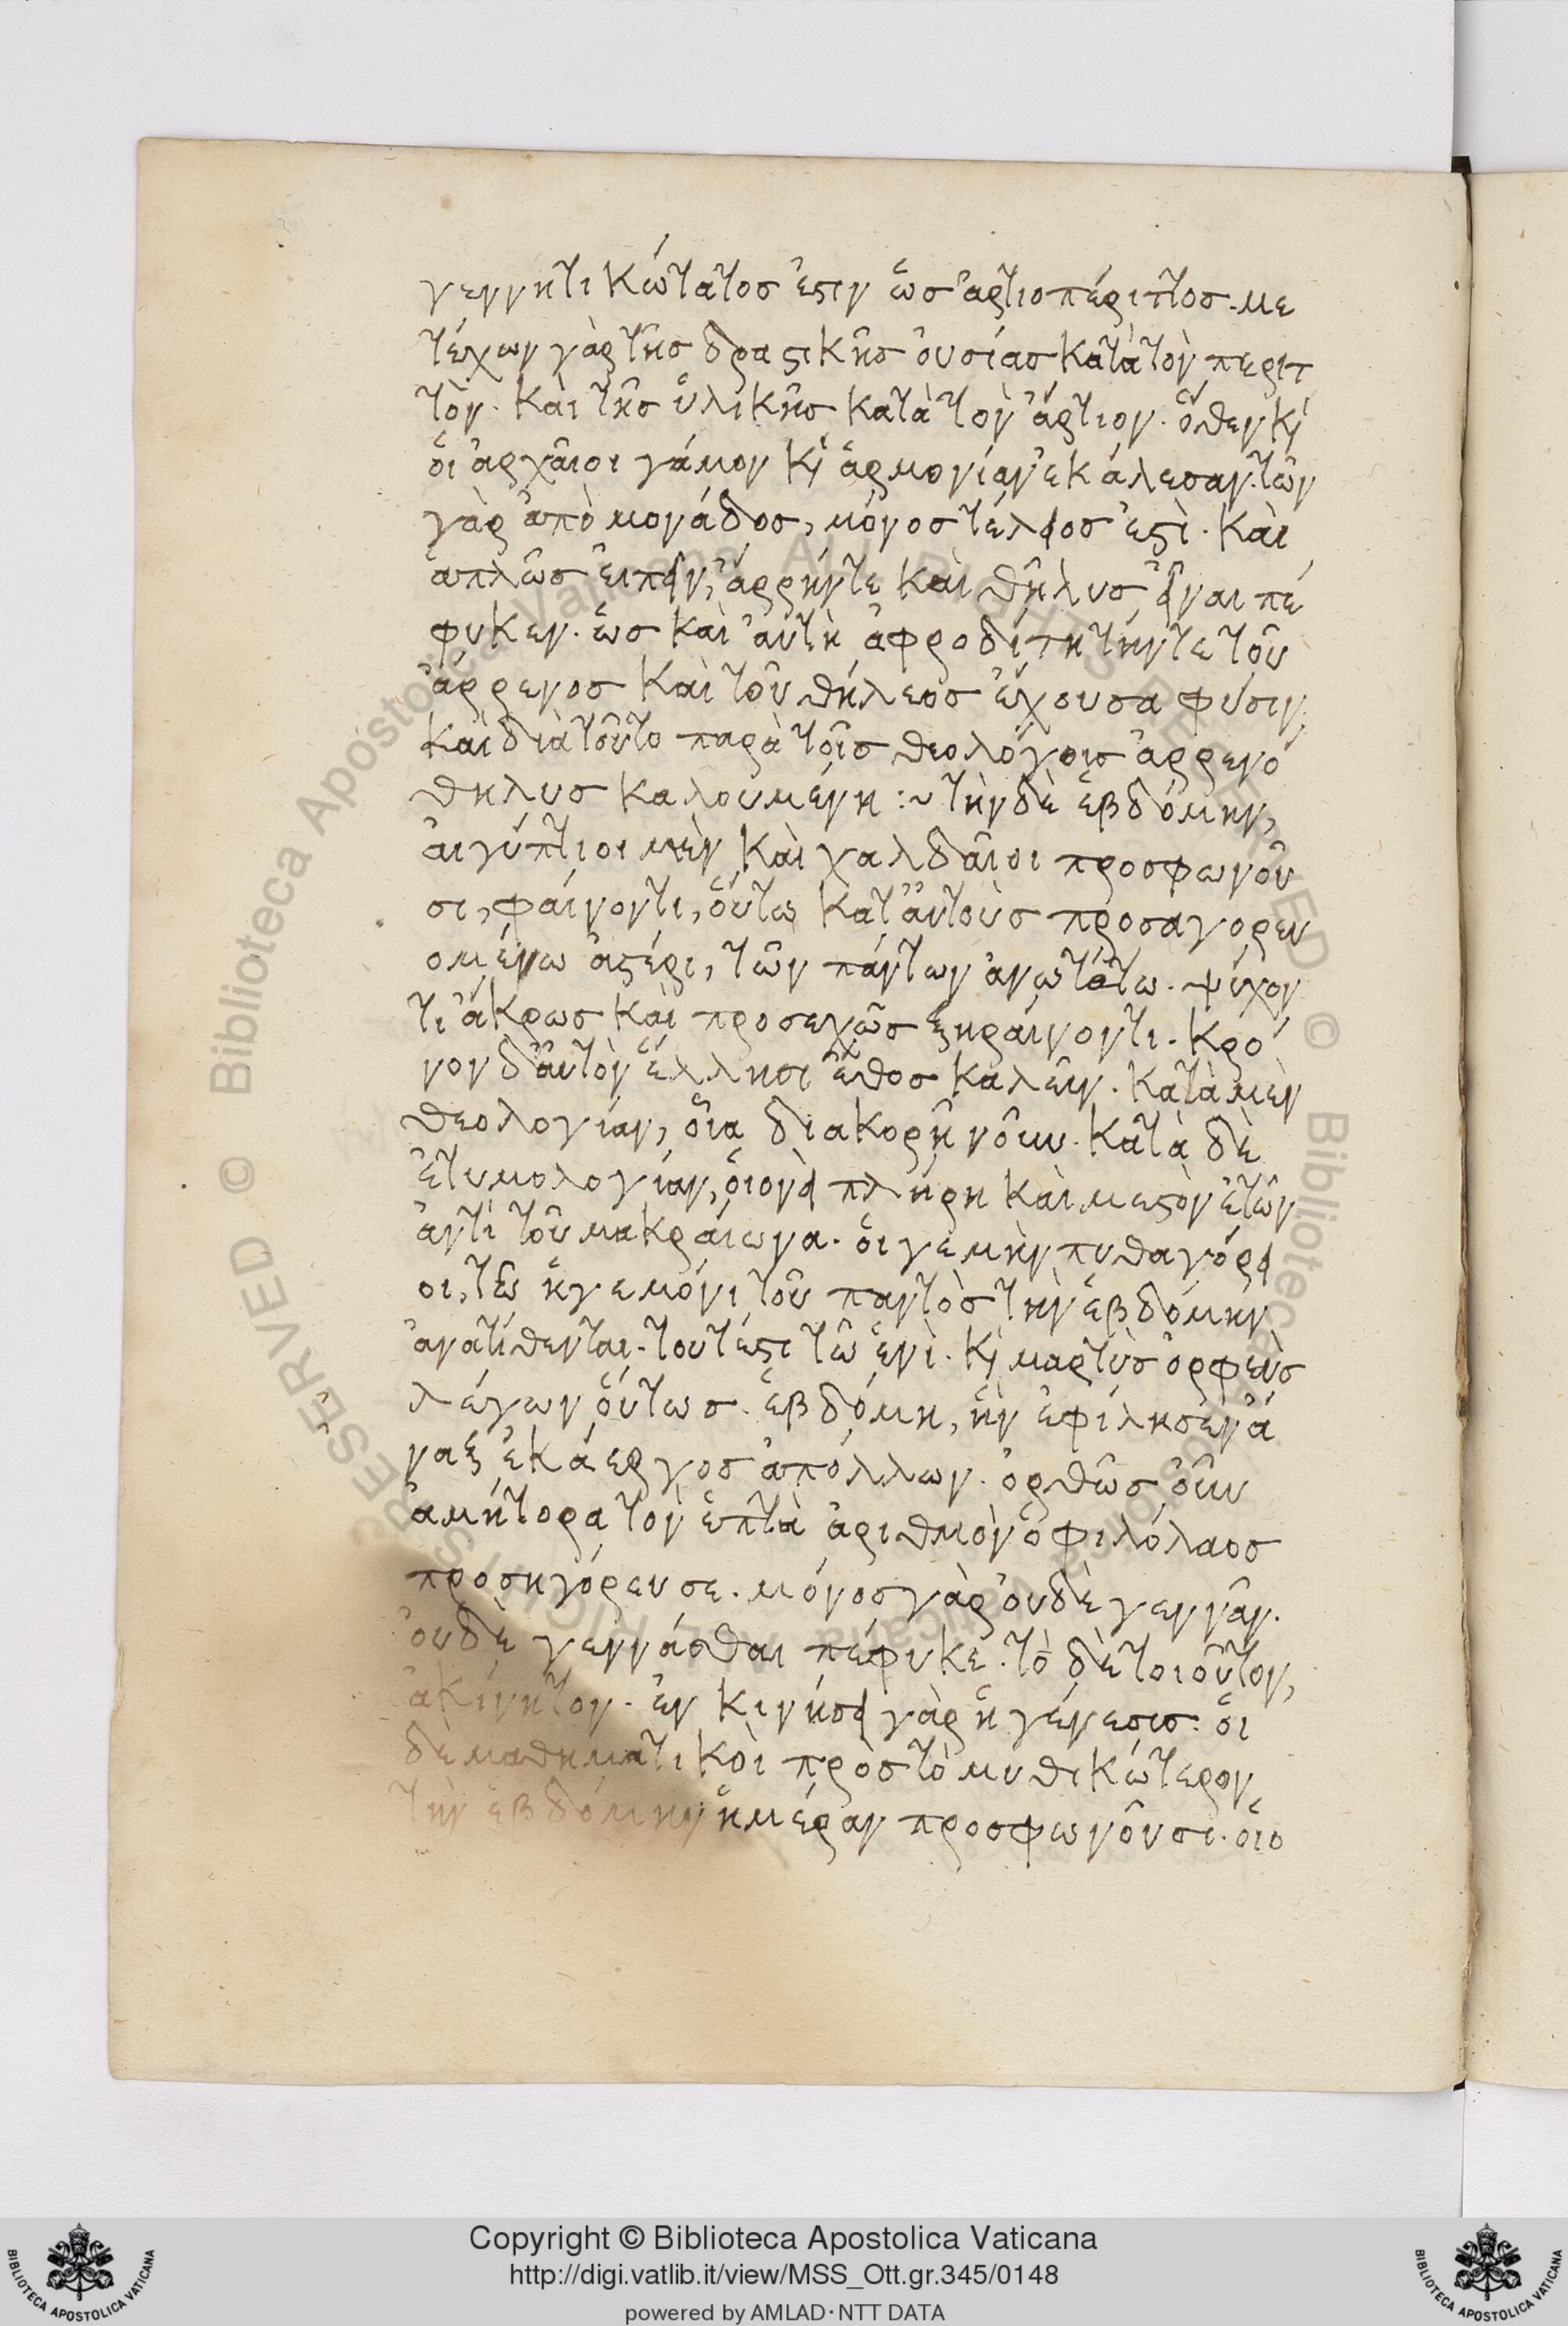 γεννητικώτατος ἐστὶν ὡς ἀρτιοπέριττος. με
τέχων γὰρ τῆς δραστικῆς οὐσίας κατὰ τὸν περιτ
τὸν. καὶ τῆς ὑλικῆς κατὰ τὸν ἄρτιον. ὅθεν κὶ
οἱ ἀρχαῖοι γάμον κὶ ἁρμονίαν ἐκάλεσαν. τῶν
γὰρ ἀπὸ μονάδος, μόνος τέλειος ἐστὶ. καὶ
ἁπλῶς εἰπεῖν, ἄρρήντε καὶ θῆλυς εἶναι πέ
φυκεν. ὡς καὶ αὐτὴ ἀφροδίτη τήντε τοῦ
ἄρρενος καὶ τοῦ θήλεος ἔχουσα φύσιν.
καὶ διὰ τοῦτο παρὰ τοῖς θεολόγοις ἀρρενό
θηλυς καλουμένη :~ τὴν δὲ ἑβδόμην,
αἰγύπτιοι μὲν καὶ χαλδαῖοι προσφωνοῦ
σι, φαίνοντι, οὕτω κατ' αὐτοὺς προσαγορευ
ομένω ἀστέρι, τῶν πάντων ἀνωτάτω. ψύχον
τι ἄκρως καὶ προσεχῶς ξηραίνοντι. κρό
νον δ' αὐτὸν ἕλλησι ἔθος καλεῖν. κατὰ μὲν
θεολογίαν, οἷα διακορῆ νοῦν. κατὰ δὲ
ἐτυμολογίαν, οἱονεὶ πλήρη καὶ μεστὸν ἐτῶν
ἀντὶ τοῦ μακραίωνα. οἵ γε μὴν πυθαγόρει
οι, τῶ ἡγεμόνι τοῦ παντὸς τὴν ἑβδόμην
ἀνατίθενται. τουτέστι τῶ ἑνὶ. κὶ μαρτὺς ὀρφεὺς
λέγων οὕτως. ἑβδόμη, ἣν ἐφίλησεν ἄ
ναξ ἑκάεργος ἀπόλλων. ὀρθῶς οὖν
ἀμήτορα τὸν ἑπτὰ ἀριθμὸν ὁ φιλόλαος
προσηγόρευσε. μόνος γὰρ οὐδὲ γεννᾶν.
οὐδὲ γεννάσθαι πέφυκε. τὸ δὲ τοιοῦτον,
ἀκίνητον. ἐν κινήσει γὰρ ἡ γένεσις. οἱ
δὲ μαθηματικοὶ πρὸς τὸ μυθικώτερον
τὴν ἑβδόμην ἡμέραν προσφωνοῦσι. οἷο
Copyright © Biblioteca Apostolica Vaticana
http://digi.vatlib.it/view/MSS_Ott.gr.345/0148
powered by AMLAD·NTT DATA